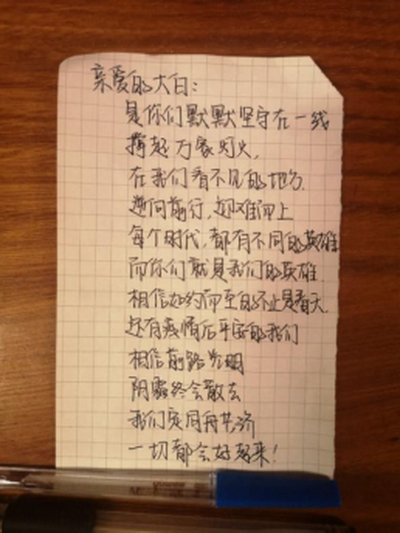 亲爱的大白:
是你们默默坚守在一线
撑起万家灯火,
在我们看不见的地方.
逆向前行,迎难而上
每个时代,都有不同的英雄
而你们就是我们的英雄.
相信如约而至的不止是春天.
还有疫情后平安的我们
相信前路光明
阴霾终会散去
我们定同舟共济
一切都会好起来!